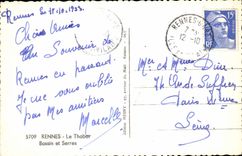 Rennes le 11.10.1953
Chers Amis
Un Souvenir de
Rennes en passant.
Je ne vous oublie
pas mes amitiés
Marcelle
5709 RENNES - Le Thabor
Bassin et Serres
RENNES
15
Mr et Mme Dive
74 Av de Suffren
Paris 15ème
Seine